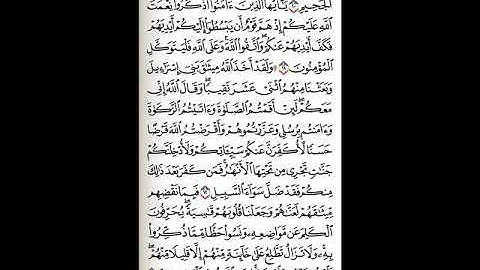 الْجَحِيمِ ۝ يَـٰٓأَيُّهَا الَّذِينَ ءَامَنُوا اذْكُرُوا نِعْمَتَ
اللَّهِ عَلَيْكُمْ إِذْ هَمَّ قَوْمٌ أَن يَبْسُطُوٓا إِلَيْكُمْ أَيْدِيَهُمْ
فَكَفَّ أَيْدِيَهُمْ عَنكُمْ ۖ وَاتَّقُوا اللَّهَ ۚ وَعَلَى اللَّهِ فَلْيَتَوَكَّلِ
الْمُؤْمِنُونَ ۝ وَلَقَدْ أَخَذَ اللَّهُ مِيثَـٰقَ بَنِىٓ إِسْرَٰٓءِيلَ
وَبَعَثْنَا مِنْهُمُ اثْنَىْ عَشَرَ نَقِيبًا ۖ وَقَالَ اللَّهُ إِنِّى
مَعَكُمْ ۖ لَئِنْ أَقَمْتُمُ الصَّلَوٰةَ وَءَاتَيْتُمُ الزَّكَوٰةَ
وَءَامَنتُم بِرُسُلِى وَعَزَّرْتُمُوهُمْ وَأَقْرَضْتُمُ اللَّهَ قَرْضًا
حَسَنًا لَّأُكَفِّرَنَّ عَنكُمْ سَيِّـَٔاتِكُمْ وَلَأُدْخِلَنَّكُمْ
جَنَّـٰتٍ تَجْرِى مِن تَحْتِهَا الْأَنْهَـٰرُ ۚ فَمَن كَفَرَ بَعْدَ ذَٰلِكَ
مِنكُمْ فَقَدْ ضَلَّ سَوَآءَ السَّبِيلِ ۝ فَبِمَا نَقْضِهِم
مِّيثَـٰقَهُمْ لَعَنَّـٰهُمْ وَجَعَلْنَا قُلُوبَهُمْ قَـٰسِيَةً ۖ يُحَرِّفُونَ
الْكَلِمَ عَن مَّوَاضِعِهِۦ ۙ وَنَسُوا حَظًّا مِّمَّا ذُكِّرُوا
بِهِۦ ۚ وَلَا تَزَالُ تَطَّلِعُ عَلَىٰ خَآئِنَةٍ مِّنْهُمْ إِلَّا قَلِيلًا مِّنْهُمْ ۖ